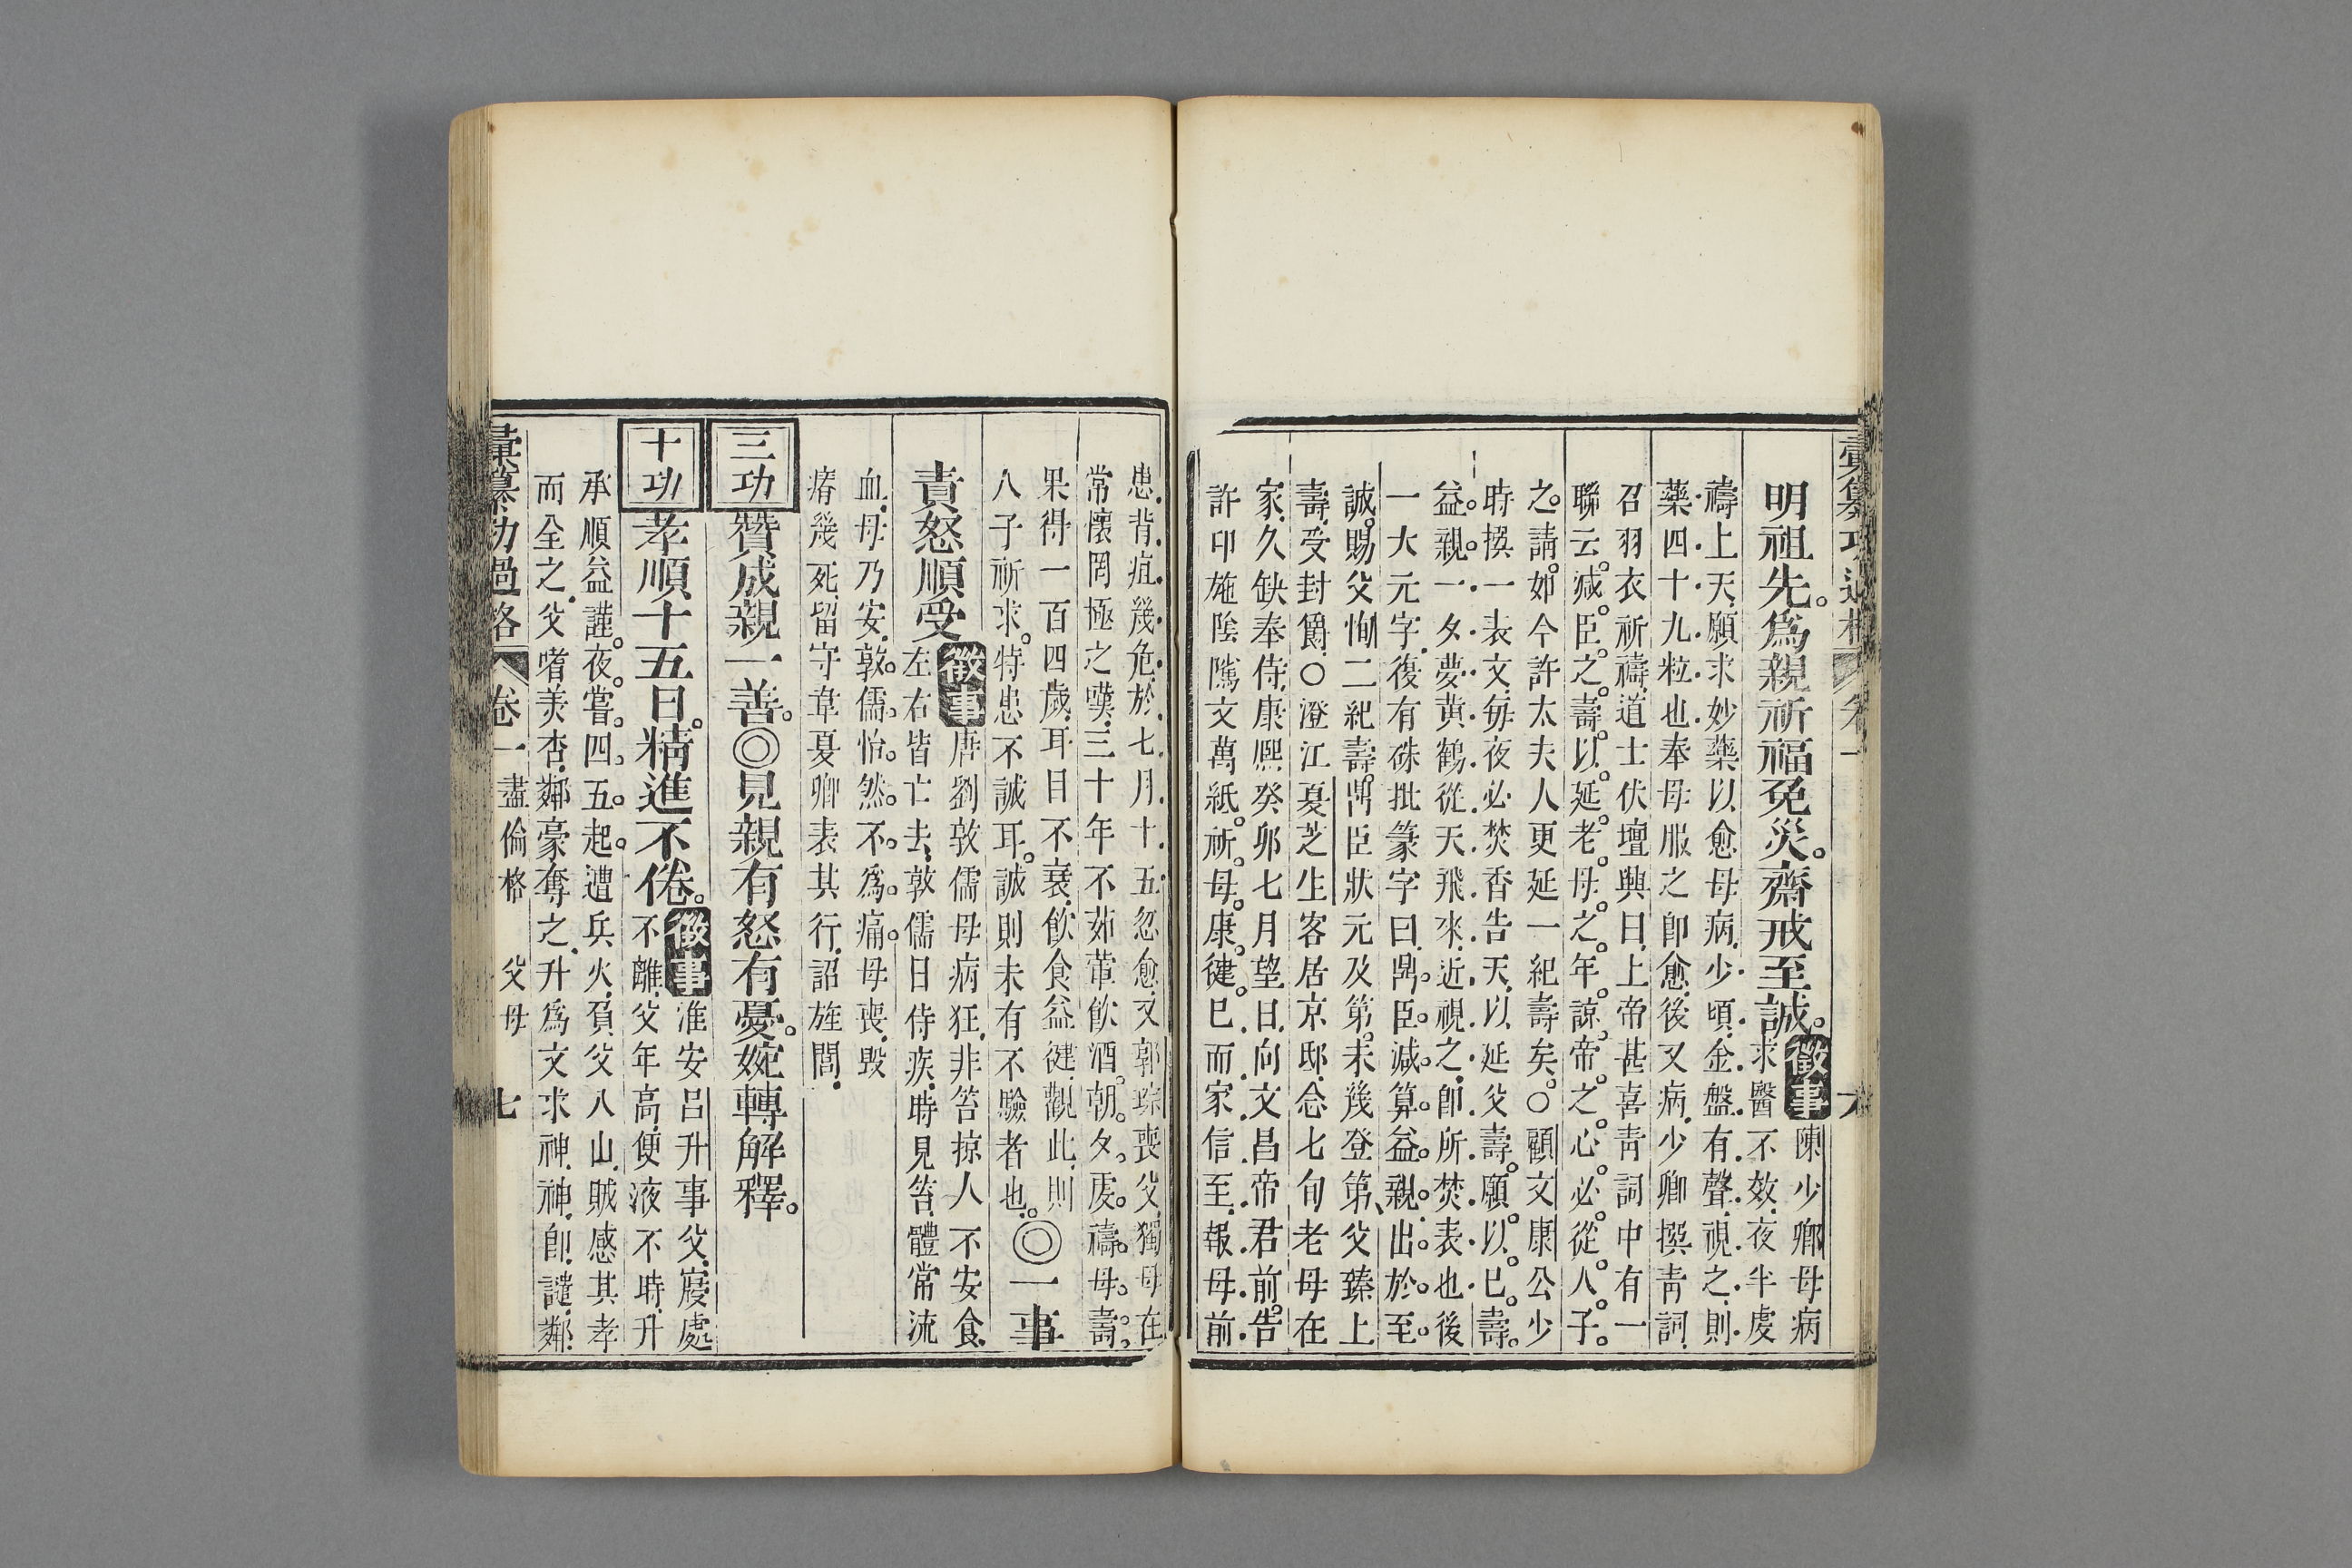 彙纂功過格 卷一 六
明祖先。爲親祈福免災。齋戒至誠。徵事陳少卿母病
求醫不效夜半虔
禱上天願求妙藥以愈母病少頃金盤有聲視之則
藥四十九粒也奉母服之卽愈後又病少卿撰靑詞
召羽衣祈禱道士伏壇興曰上帝甚喜靑詞中有一
聯云減臣之壽以延老母之年諒帝之心必從人子
之請如今許太夫人更延一紀壽矣○顧文康公少
時撰一表文每夜必焚香告天以延父壽願以已壽
益親一夕夢黃鶴從天飛來近視之卽所焚表也後
一大元字復有硃批篆字曰鼎臣減算益親出於至
誠賜父恂二紀壽鼎臣狀元及第未幾登第父臻上
壽受封爵○澄江夏芝生客居京邸念七旬老母在
家久缺奉侍康熙癸卯七月望日向文昌帝君前告
許印施陰隲文萬紙祈母康健已而家信至報母前
患背疽幾危於七月十五忽愈又郭琮喪父獨母在
常懷罔極之嘆三十年不茹葷飮酒朝夕虔禱母壽
果得一百四歲耳目不衰飮食益健觀此則
人子祈求特患不誠耳誠則未有不驗者也◎一事
責怒順受徵事唐劉敦儒母病狂非笞掠人不安食
左右皆亡去敦儒日侍疾時見笞體常流
血母乃安敦儒怡然不爲痛母喪毁
瘠幾死留守韋夏卿表其行詔旌閭
三功 贊成親一善。◎見親有怒有憂。婉轉解釋。
十功 孝順十五日。精進不倦。徵事淮安呂升事父寢處
不離父年高便液不時升
承順益謹夜嘗四五起遭兵火負父入山賊感其孝
而全之父嗜美杏鄰豪奪之升爲文求神神卽譴鄰
彙纂功過格 卷一 盡倫格 父母 七